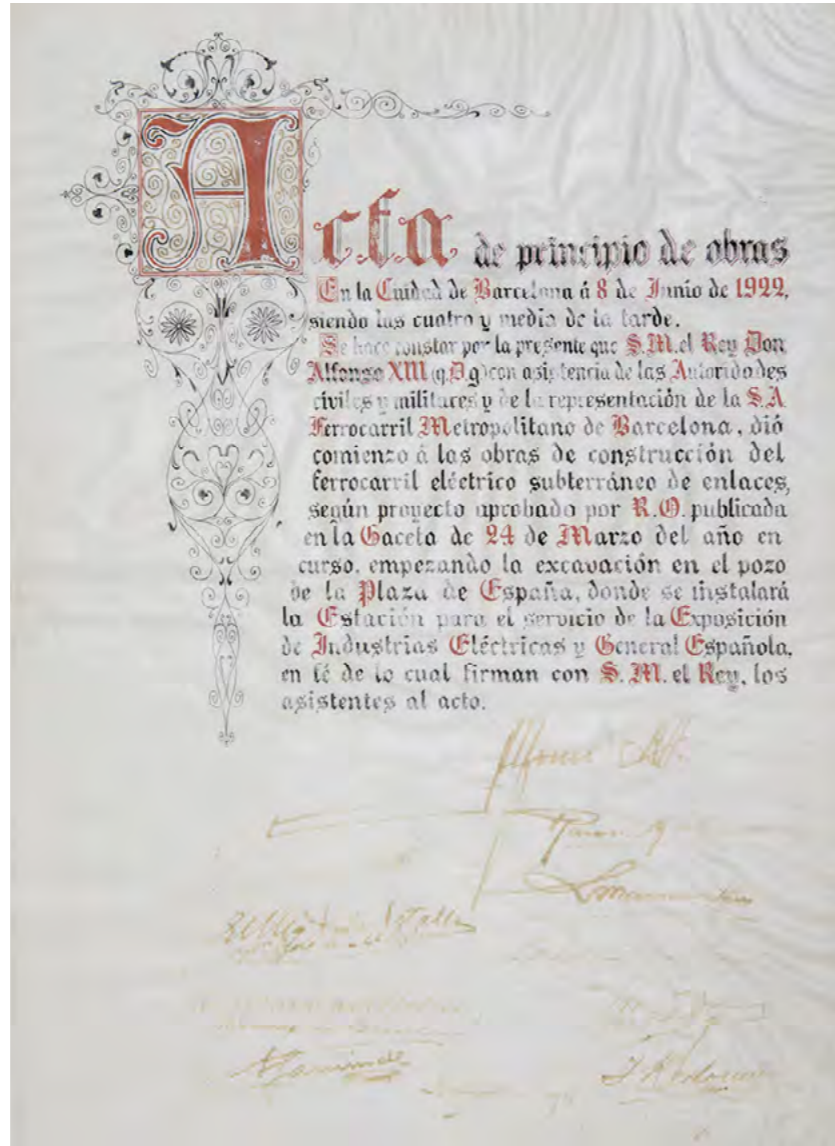 Acta de principio de obras
En la Ciudad de Barcelona á 8 de Junio de 1922,
siendo las cuatro y media de la tarde.
Se hace constar por la presente que S.M. el Rey Don
Alfonso XIII (q.D.g) con asistencia de las Autoridades
civiles y militares y de la representación de la S.A
Ferrocarril Metropolitano de Barcelona, dió
comienzo á las obras de construcción del
ferrocarril eléctrico subterráneo de enlaces,
según proyecto aprobado por R.O. publicada
en la Gaceta de 24 de Marzo del año en
curso, empezando la excavación en el pozo
de la Plaza de España, donde se instalará
la Estación para el servicio de la Exposición
de Industrias Eléctricas y General Española,
en fé de lo cual firman con S.M. el Rey, los
asistentes al acto.
Alfonso XIII